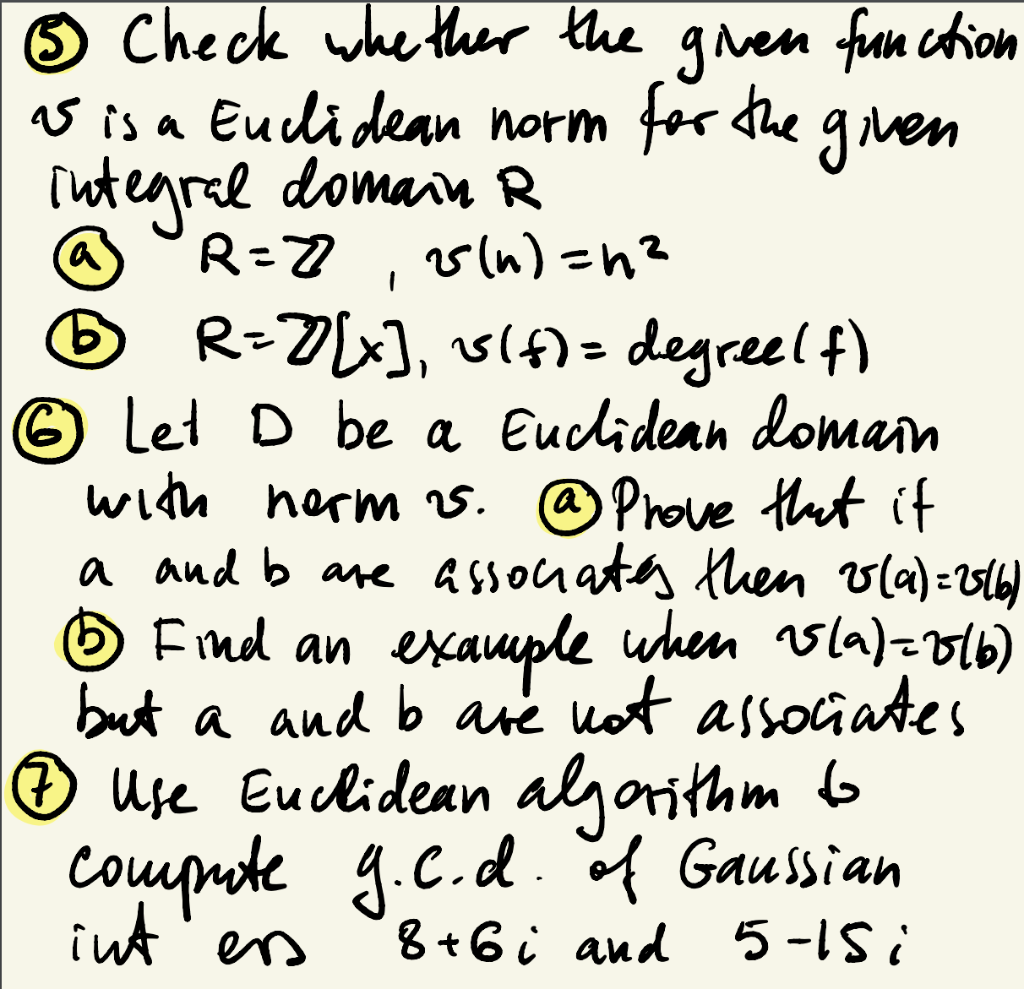 5 Check whether the given function
v is a Euclidean norm for the given
integral domain R
a R=ℤ, v(n)=n²
b R=ℤ[x], v(f)= degree(f)
6 Let D be a Euclidean domain
with norm v. a Prove that if
a and b are associates then v(a)=v(b)
b Find an example when v(a)=v(b)
but a and b are not associates
7 Use Euclidean algorithm to
compute g.c.d. of Gaussian
int ers 8+6i and 5-15i